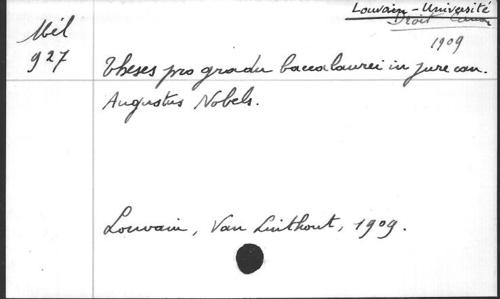 Louvain - Université
Droit Canon
1909
Mél
927
Theses pro gradu baccalaurei in jure can.
Augustus Nobels.
Louvain, Van Linthout, 1909.